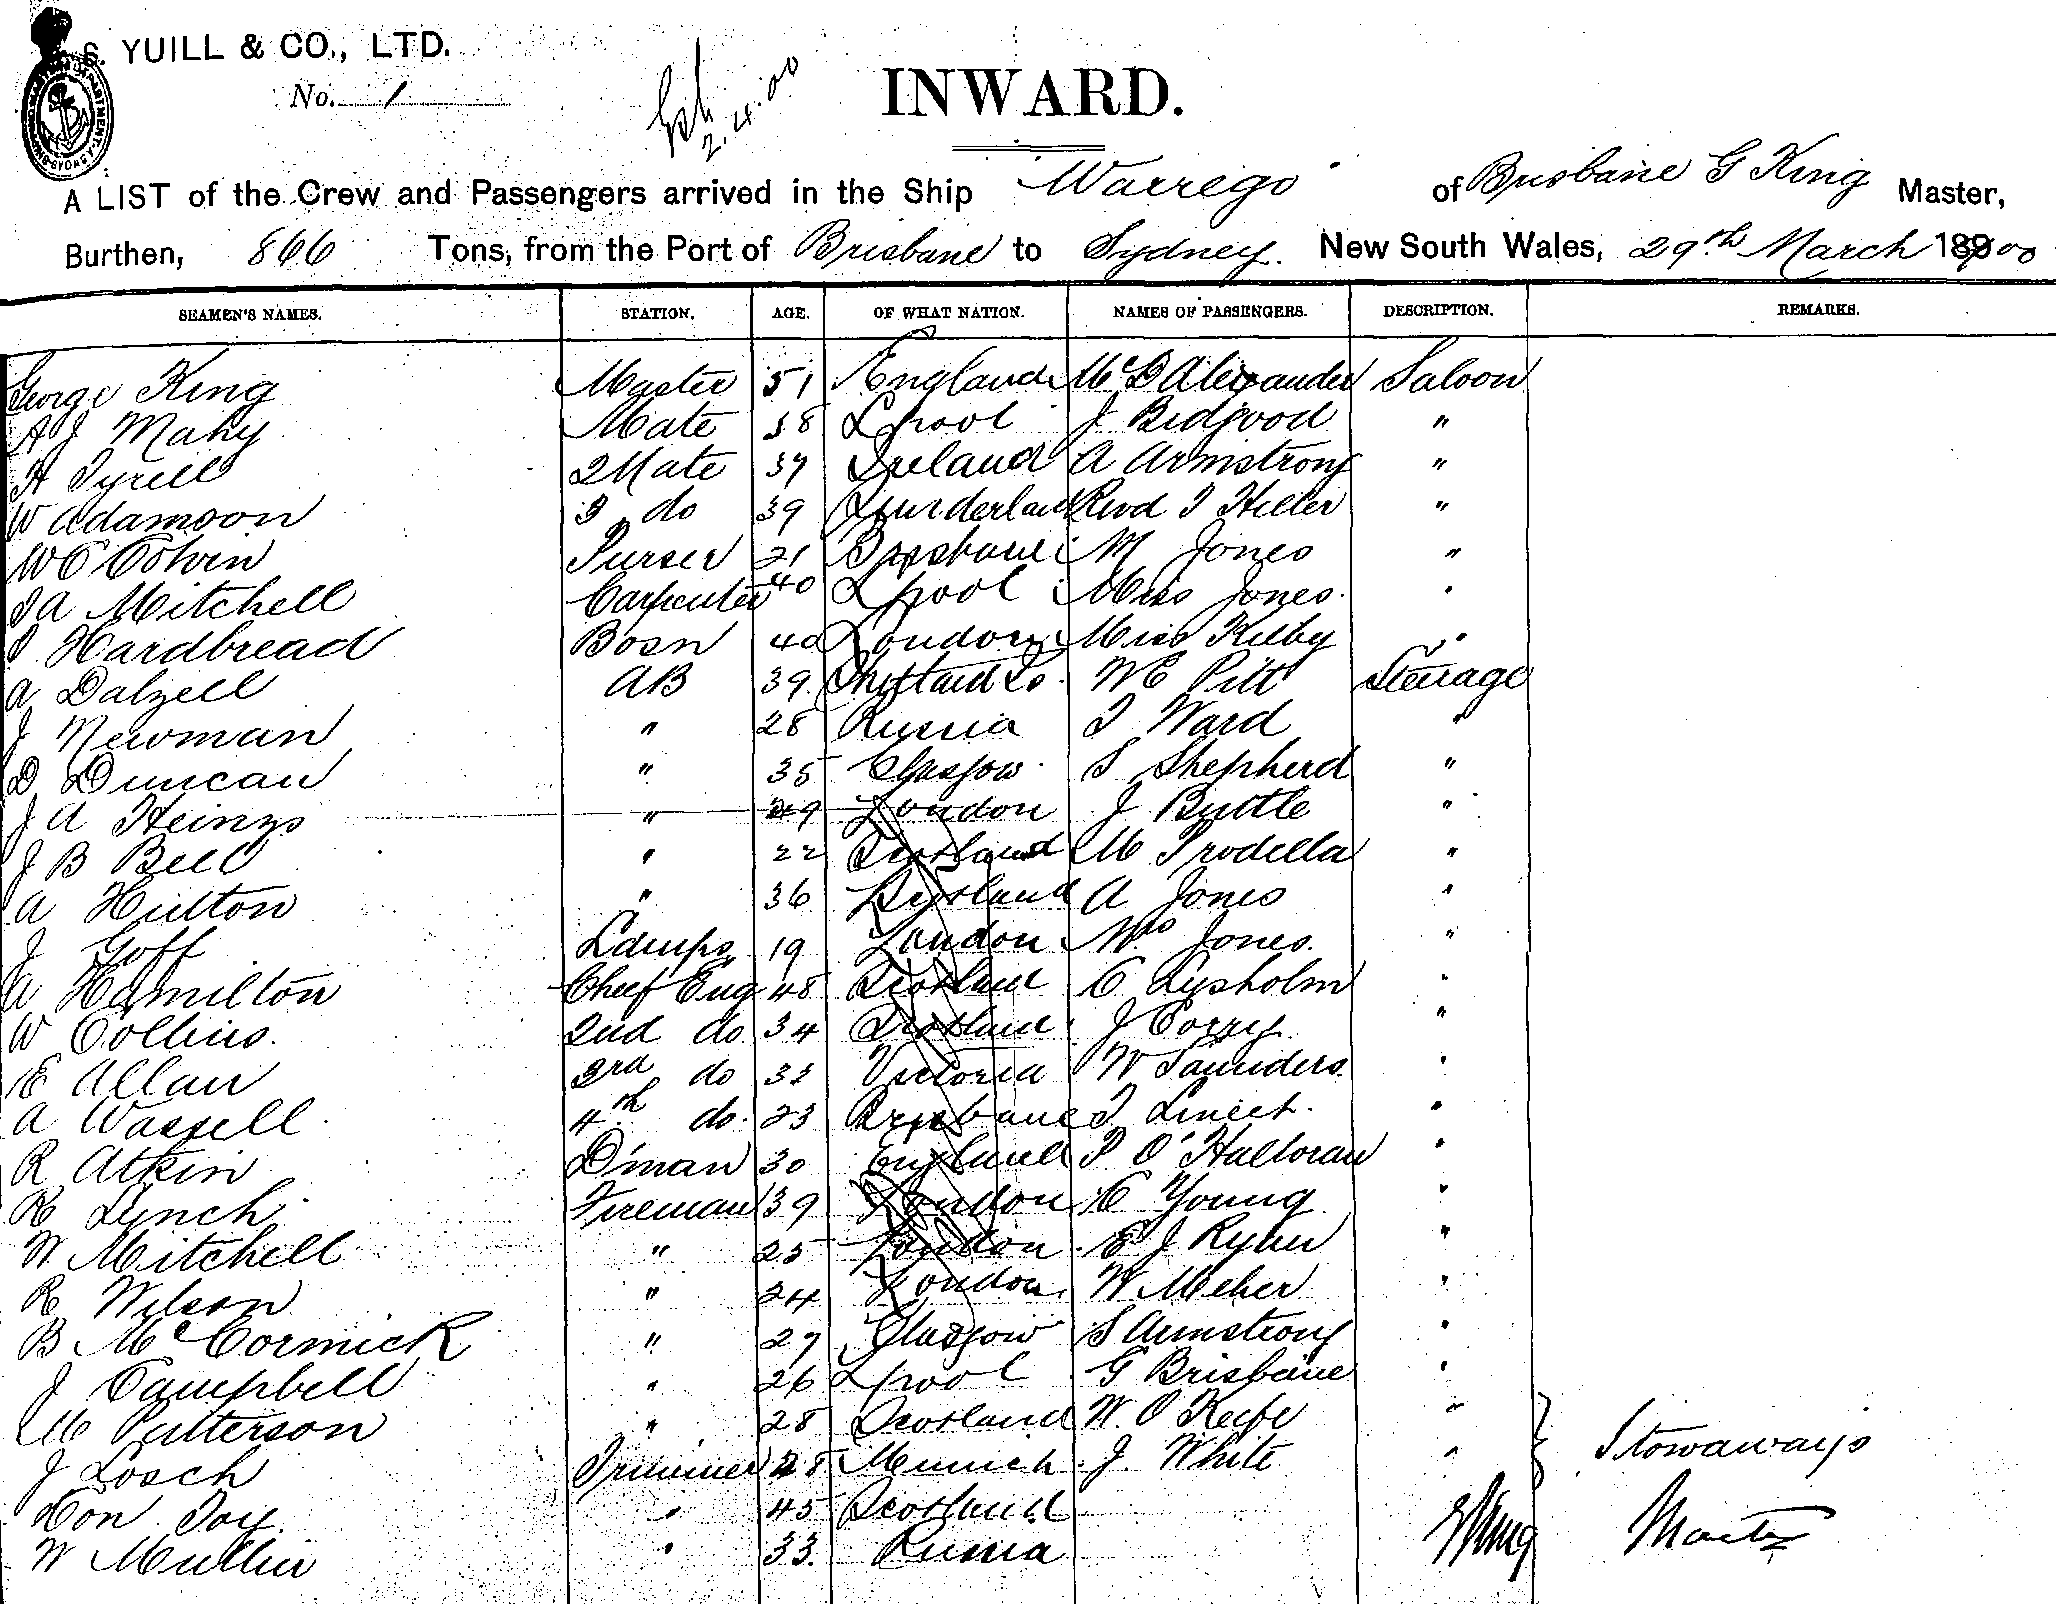 S. YUILL & CO., LTD.
No. 1
2.4.00
INWARD.
A LIST of the Crew and Passengers arrived in the Ship Warrego of Brisbane G King Master,
Burthen, 866 Tons, from the Port of Brisbane to Sydney. New South Wales, 29th March 1900
SEAMEN'S NAMES. STATION. AGE. OF WHAT NATION. NAMES OF PASSENGERS. DESCRIPTION. REMARKS.
George King Master 51 England McD Alexander Saloon
A J Mahy Mate 38 Lpool J Bidgood "
H Tyrell 2 Mate 37 Ireland A Armstrong "
W Adamson 3 do 39 Sunderland Revd T Hiller "
W C Colvin Purser 21 Brisbane M Jones "
J A Mitchell Carpenter 40 Lpool Miss Jones "
T Hardbread Bosn 40 London Miss Kilby "
A Dalzell AB 39 Shetland Is W C Pitt Steerage
J Newman " 28 Russia T Ward "
D Duncan " 35 Glasgow S Shepherd "
J A Heinzs " 29 London J Buttle "
J B Bell " 22 Scotland M Prodella "
A Hutton " 36 England A Jones "
J Goff Lamps 19 London Mrs Jones "
A Hamilton Chief Eng 48 Scotland C Lysholm "
W Collins 2nd do 34 Scotland J Corry "
E Allan 3rd do 33 Victoria W Saunders "
A Wassell 4th do 23 Brisbane T "
R Atkin D'man 30 England P O'Halloran "
R Lynch Fireman 39 London C Young "
W Mitchell " 25 London E J Ryan "
R Wilson " 24 London W Meher "
B McCormick " 27 Glasgow S Armstrong "
J Campbell " 26 Lpool G Brisbane "
M Patterson " 28 Scotland W. O Keefe " Stowaways
J Losch Trimmer 28 Munich J. White "
Don Toy " 45 Scotland G King Master
W Mullin " 33 Russia